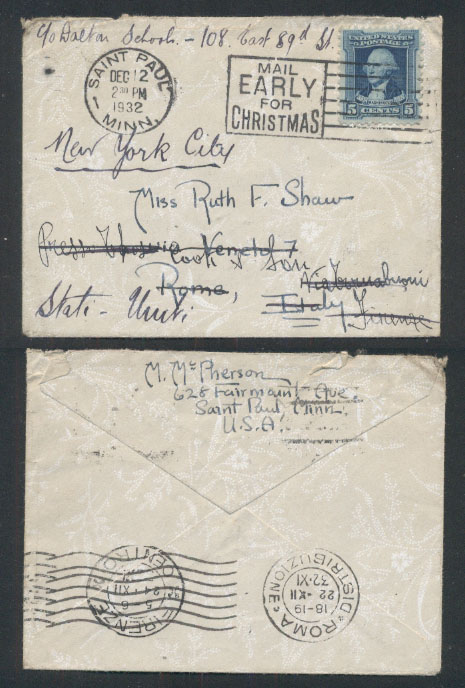 c/o Dalton Schools. - 108. East 89d St.
SAINT PAUL
DEC 12
2:30 PM
1932
MINN.
MAIL
EARLY
FOR
CHRISTMAS
UNITED STATES
POSTAGE
5 CENTS 5
New York City
Miss Ruth F. Shaw
Cook & Son
Rome,
Italy Firenze
Stati-Uniti
M. McPherson
628 Fairmount Ave.
Saint Paul, Minn.
U.S.A.
FIRENZE
24 XII
ROMA
DISTRIBUZIONE
18-19
22-XII
32·XI